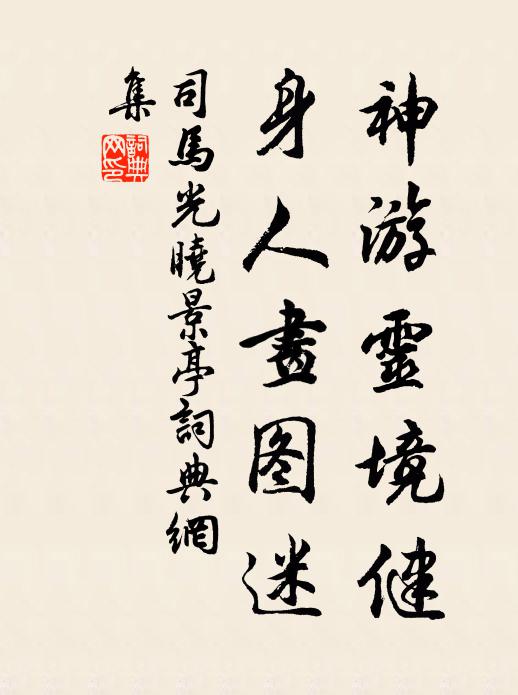 神游靈境健
身人畫图迷
司馬光曉景亭詞典網
集
詞典
网印